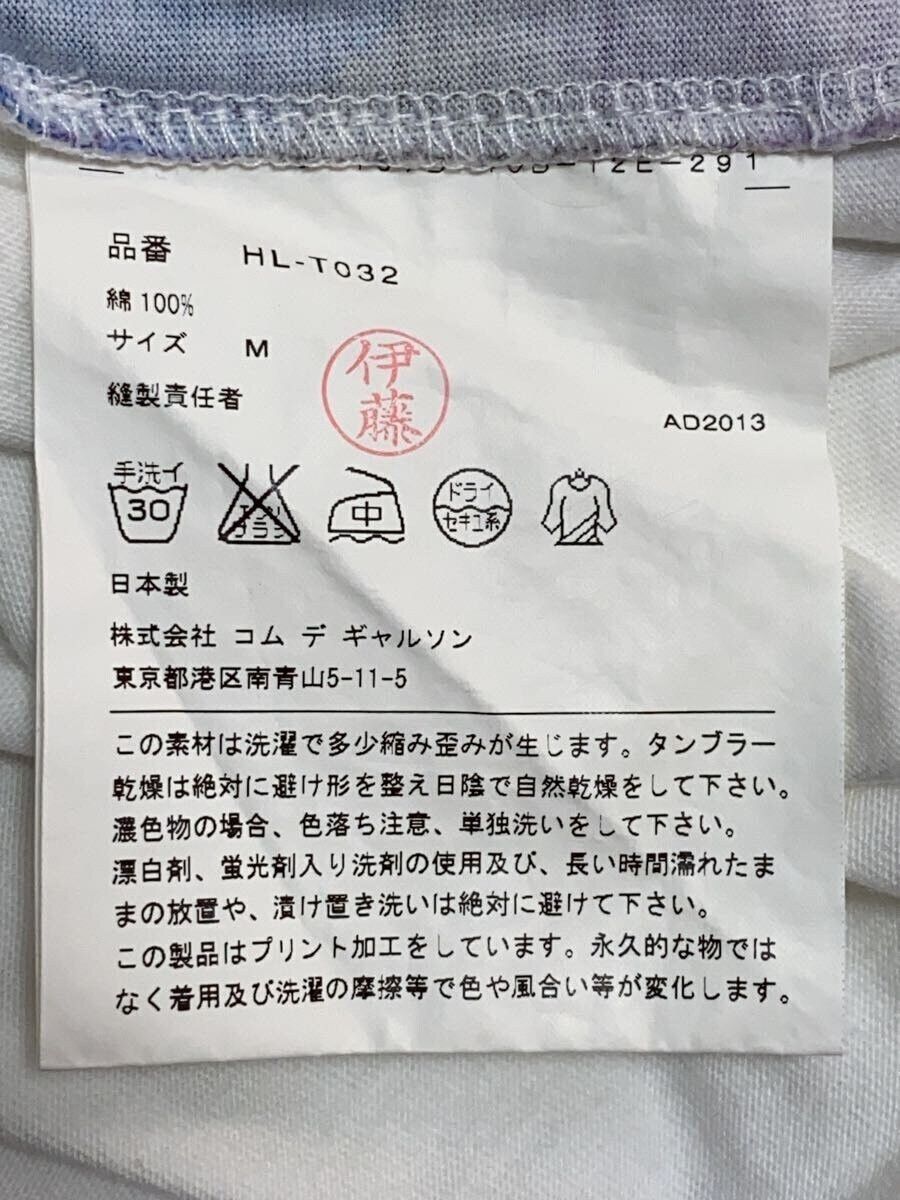 12E-291
品番 HL-T032
綿100%
サイズ M
縫製責任者
伊藤
AD2013
手洗イ
30
エンソ
フラン
中
ドライ
セキユ系
日本製
株式会社 コム デ ギャルソン
東京都港区南青山5-11-5
この素材は洗濯で多少縮み歪みが生じます。タンブラー
乾燥は絶対に避け形を整え日陰で自然乾燥をして下さい。
濃色物の場合、色落ち注意、単独洗いをして下さい。
漂白剤、蛍光剤入り洗剤の使用及び、長い時間濡れたま
まの放置や、漬け置き洗いは絶対に避けて下さい。
この製品はプリント加工をしています。永久的な物では
なく着用及び洗濯の摩擦等で色や風合い等が変化します。